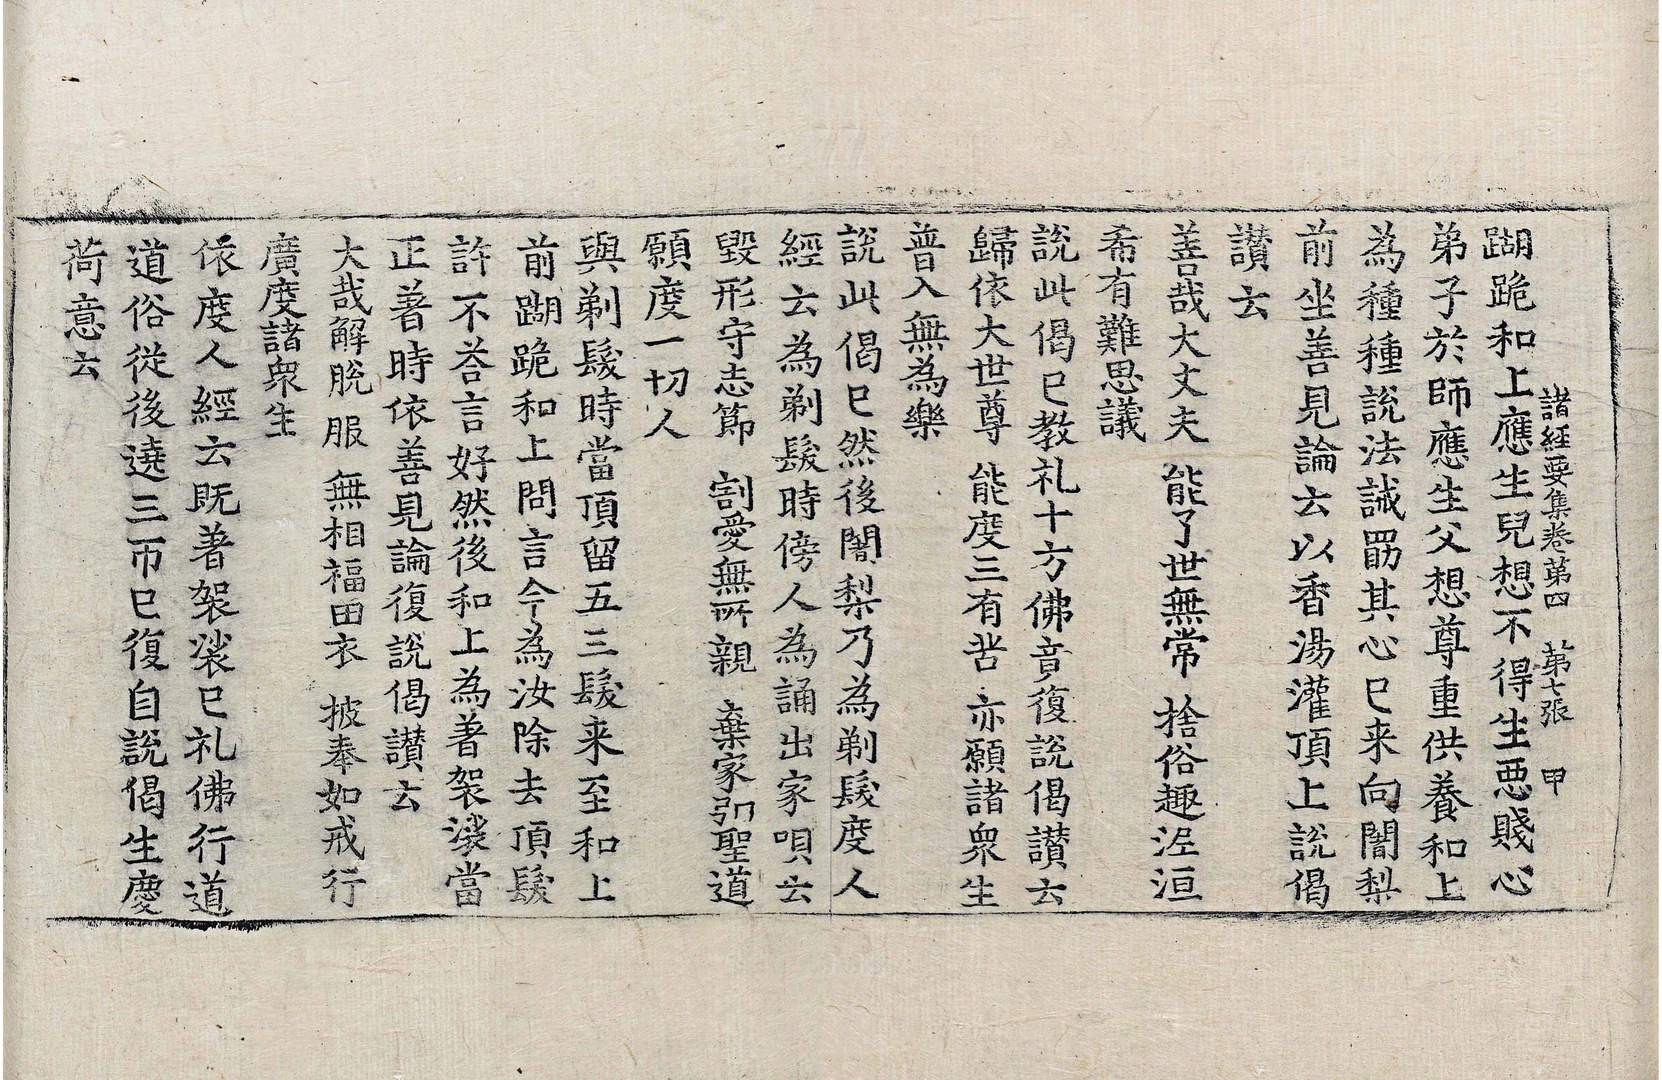 諸経要集卷第四　第七張　甲
蹦跪和上應生兒想不得生惡賤心
弟子於師應生父想尊重供養和上
為種種說法誡勗其心已来向闍梨
前坐善見論云以香湯灌頂上說偈
讃云
善哉大丈夫　能了世無常　捨俗趣泥洹
希有難思議
說此偈已教礼十方佛竟復說偈讃云
歸依大世尊　能度三有苦　亦願諸衆生
普入無為樂
說此偈已然後闍梨乃為剃髮度人
經云為剃髮時傍人為誦出家唄云
毀形守志節　割愛無所親　棄家弘聖道
願度一切人
與剃髮時當頂留五三髮来至和上
前蹦跪和上問言今為汝除去頂髮
許不荅言好然後和上為著袈裟當
正著時依善見論復說偈讃云
大哉解脫服　無相福田衣　披奉如戒行
廣度諸衆生
依度人經云既著袈裟已礼佛行道
道俗従後遶三帀已復自說偈生慶
荷意云